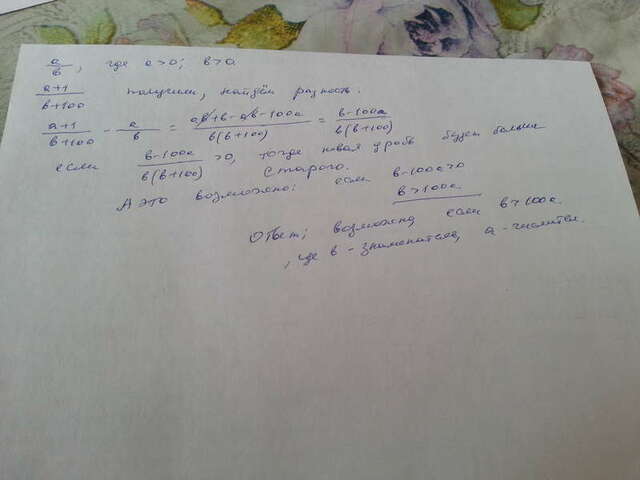 a/в, где a>0; в>0
(a+1)/(в+100) получим, найдём разность:
(a+1)/(в+100) - a/в = (aв+в-aв-100a)/(в(в+100)) = (в-100a)/(в(в+100))
если (в-100a)/(в(в+100)) >0, тогда новая дробь будет больше
старого.
А это возможно: если в-100a>0
в>100a
Ответ: возможно, если в>100a,
, где в - знаменатель, a - числитель.